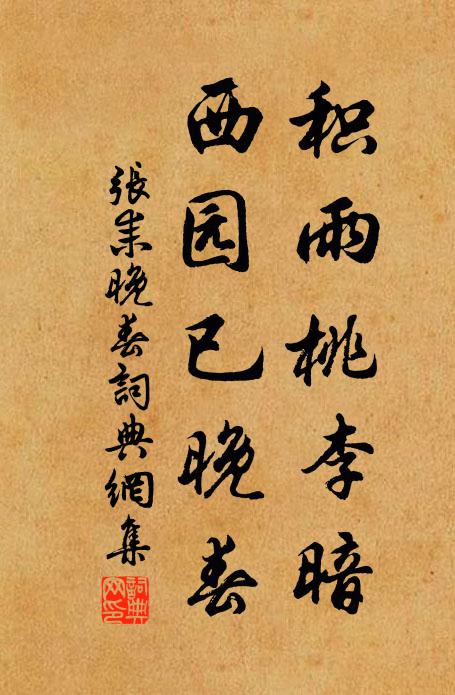 积雨桃李暗
西园已晚春
張耒晚春詞典網集
詞典網印